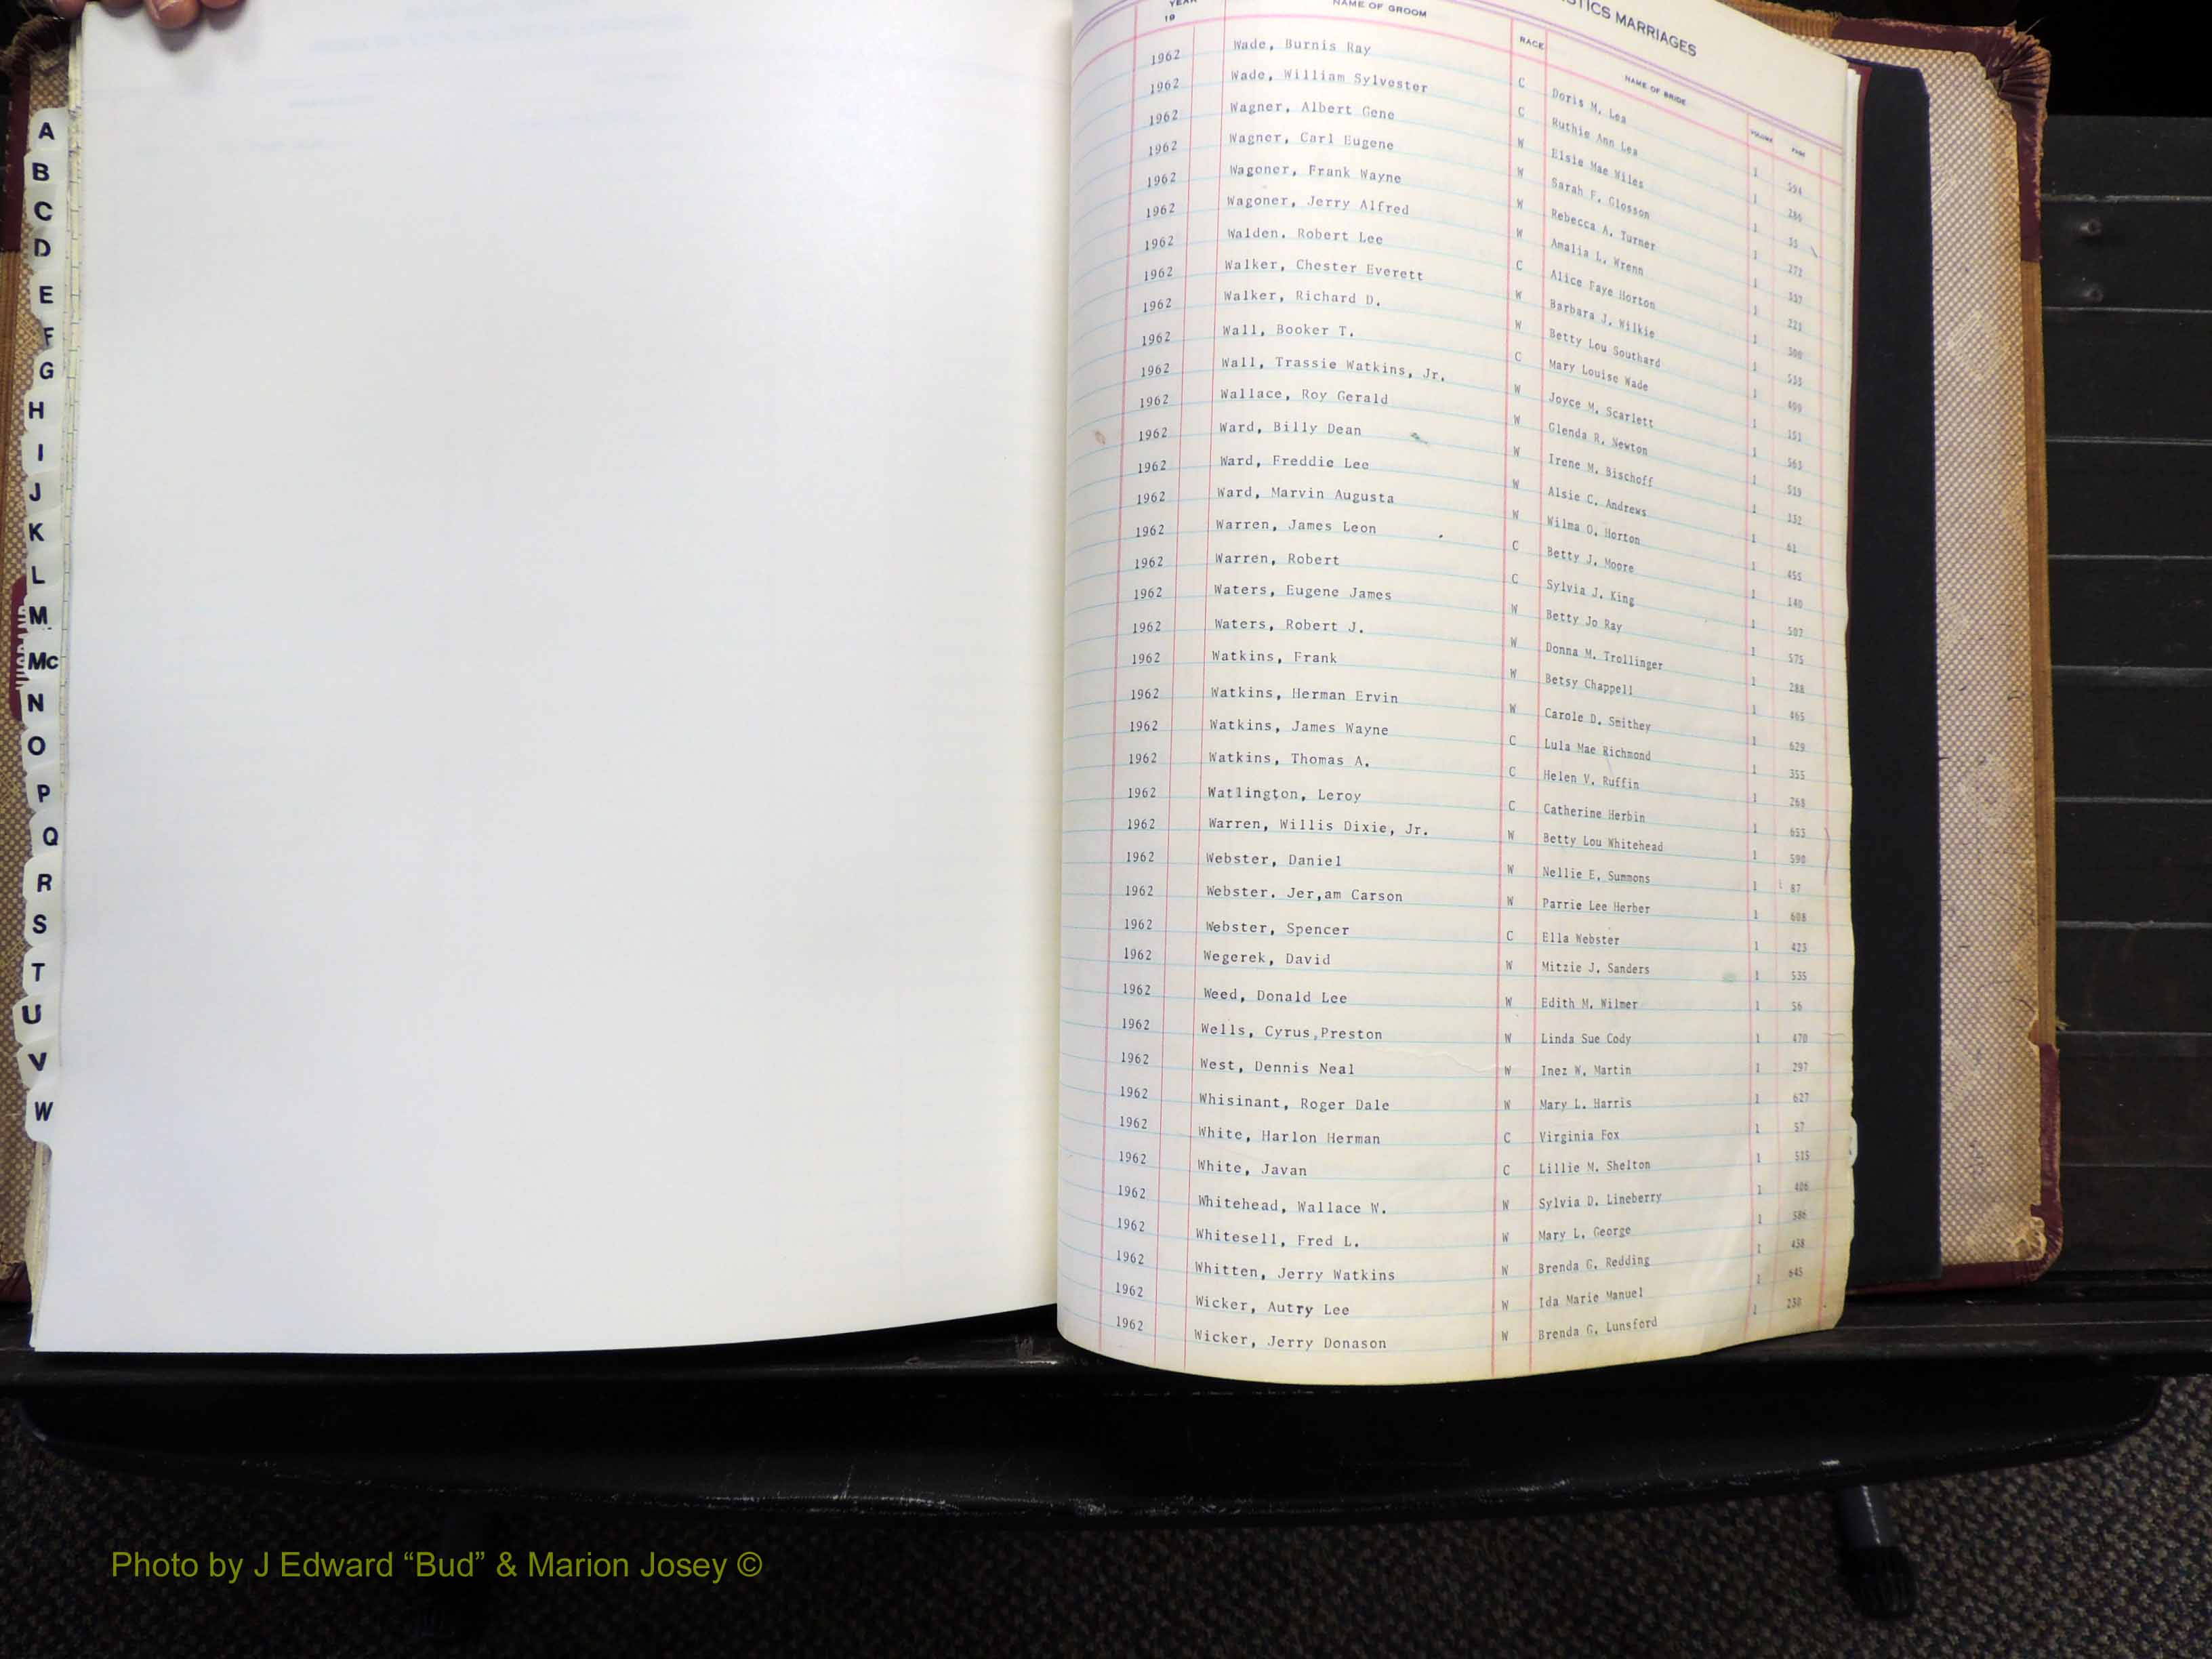 STICS MARRIAGES
YEAR 19 NAME OF GROOM RACE NAME OF BRIDE VOLUME PAGE
1962 Wade, Burnis Ray C Doris M. Lea 1 594
1962 Wade, William Sylvester C Ruthie Ann Lea 1 286
1962 Wagner, Albert Gene W Elsie Mae Wiles 1 35
1962 Wagner, Carl Eugene W Sarah F. Glosson 1 272
1962 Wagoner, Frank Wayne W Rebecca A. Turner 1
1962 Wagoner, Jerry Alfred W Amalia L. Wrenn 1 221
1962 Walden. Robert Lee C Alice Faye Horton 1
1962 Walker, Chester Everett W Barbara J. Wilkie 1
1962 Walker, Richard D. W Betty Lou Southard 1 499
1962 Wall, Booker T. C Mary Louise Wade 1 151
1962 Wall, Trassie Watkins, Jr. W Joyce M. Scarlett 1 563
1962 Wallace, Roy Gerald W Glenda R. Newton 1 519
1962 Ward, Billy Dean W Irene M. Bischoff 1 132
1962 Ward, Freddie Lee W Alsie C. Andrews 1 61
1962 Ward, Marvin Augusta W Wilma O. Horton 1 455
1962 Warren, James Leon C Betty J. Moore 1 140
1962 Warren, Robert C Sylvia J. King 1 507
1962 Waters, Eugene James W Betty Jo Ray 1 575
1962 Waters, Robert J. W Donna M. Trollinger 1 288
1962 Watkins, Frank W Betsy Chappell 1 465
1962 Watkins, Herman Ervin W Carole D. Smithey 1 629
1962 Watkins, James Wayne C Lula Mae Richmond 1 355
1962 Watkins, Thomas A. C Helen V. Ruffin 1 268
1962 Watlington, Leroy C Catherine Herbin 1 653
1962 Warren, Willis Dixie, Jr. W Betty Lou Whitehead 1 590
1962 Webster, Daniel W Nellie E. Summons 1 87
1962 Webster. Jer,am Carson W Parrie Lee Herber 1 608
1962 Webster, Spencer C Ella Webster 1 423
1962 Wegerek, David W Mitzie J. Sanders 1 535
1962 Weed, Donald Lee W Edith M. Wilmer 1 56
1962 Wells, Cyrus,Preston W Linda Sue Cody 1 470
1962 West, Dennis Neal W Inez W. Martin 1 297
1962 Whisinant, Roger Dale W Mary L. Harris 1 627
1962 White, Harlon Herman C Virginia Fox 1 57
1962 White, Javan C Lillie M. Shelton 1 515
1962 Whitehead, Wallace W. W Sylvia D. Lineberry 1 406
1962 Whitesell, Fred L. W Mary L. George 1 586
1962 Whitten, Jerry Watkins W Brenda G. Redding 1 438
1962 Wicker, Autry Lee W Ida Marie Manuel 1 645
1962 Wicker, Jerry Donason W Brenda G. Lunsford 1 238
A
B
C
D
E
F
G
H
I
J
K
L
M
Mc
N
O
P
Q
R
S
T
U
V
W
Photo by J Edward “Bud” & Marion Josey ©